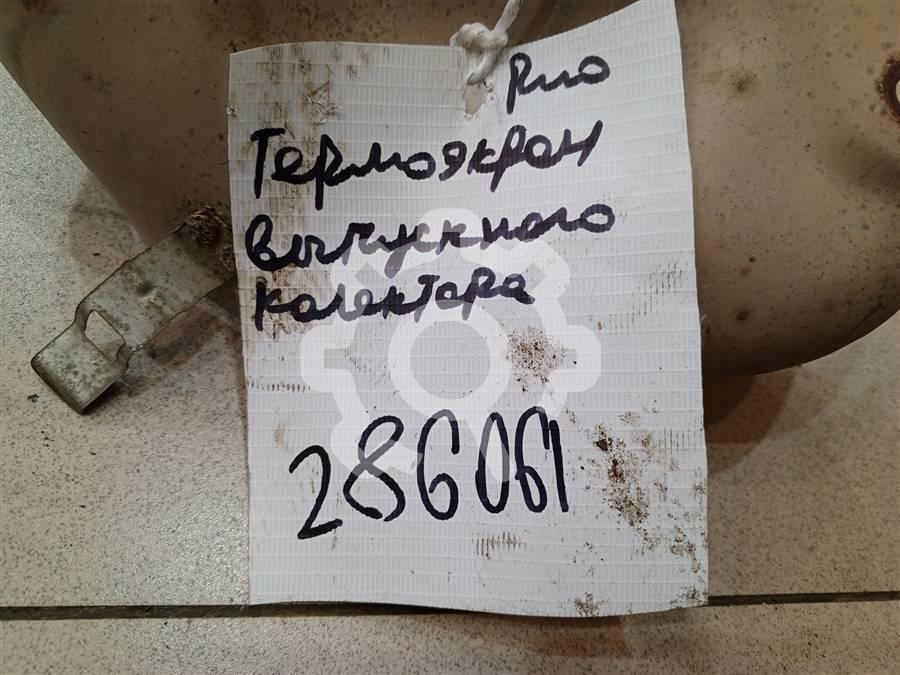 Рио
Термоэкран
выпускного
колектора
286061